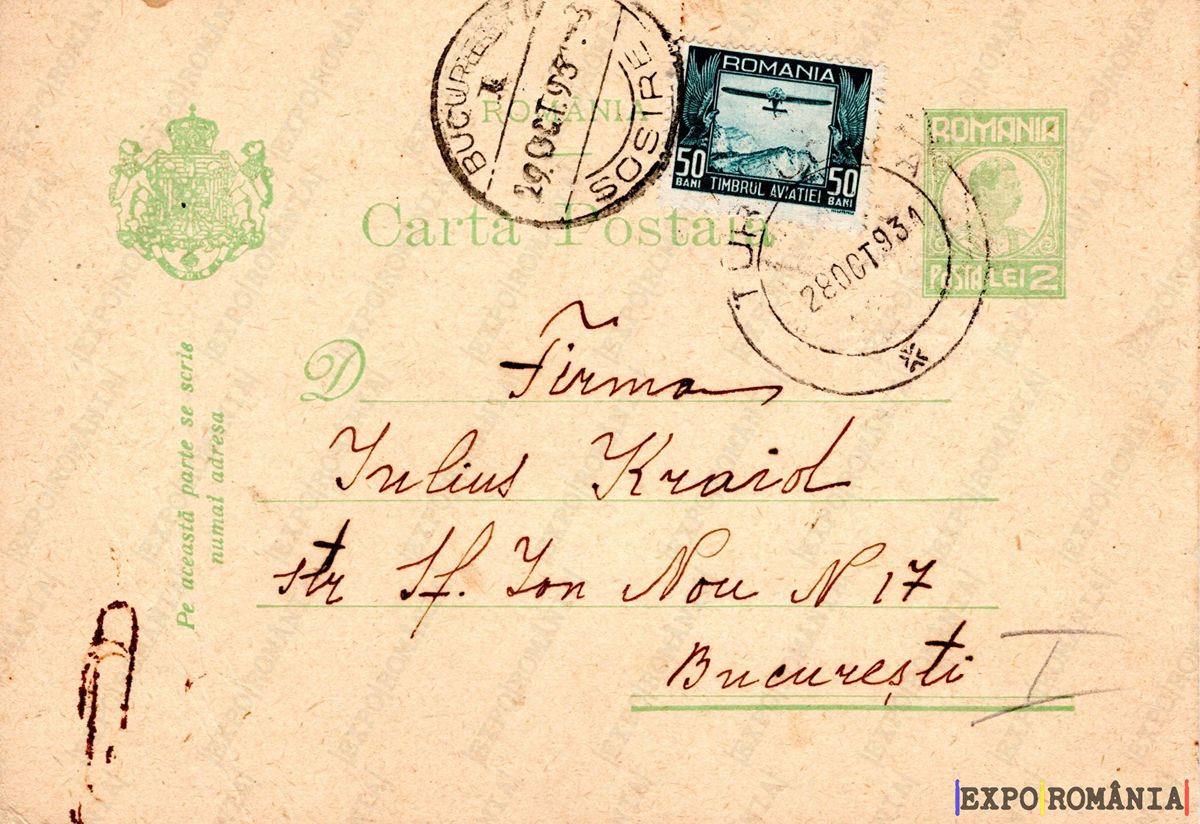 BUCUREȘTI
29.OCT.93
SOSIRE
ROMÂNIA
ROMANIA
50 BANI TIMBRUL AVIAȚIEI 50 BANI
ROMANIA
POSTA LEI 2
Carta Postala
TUR
28 OCT. 931
D Firma
Iulius Kraid
str Sf. Ion Nou N 17
București I
Pe această parte se scrie
numai adresa
EXPO ROMÂNIA